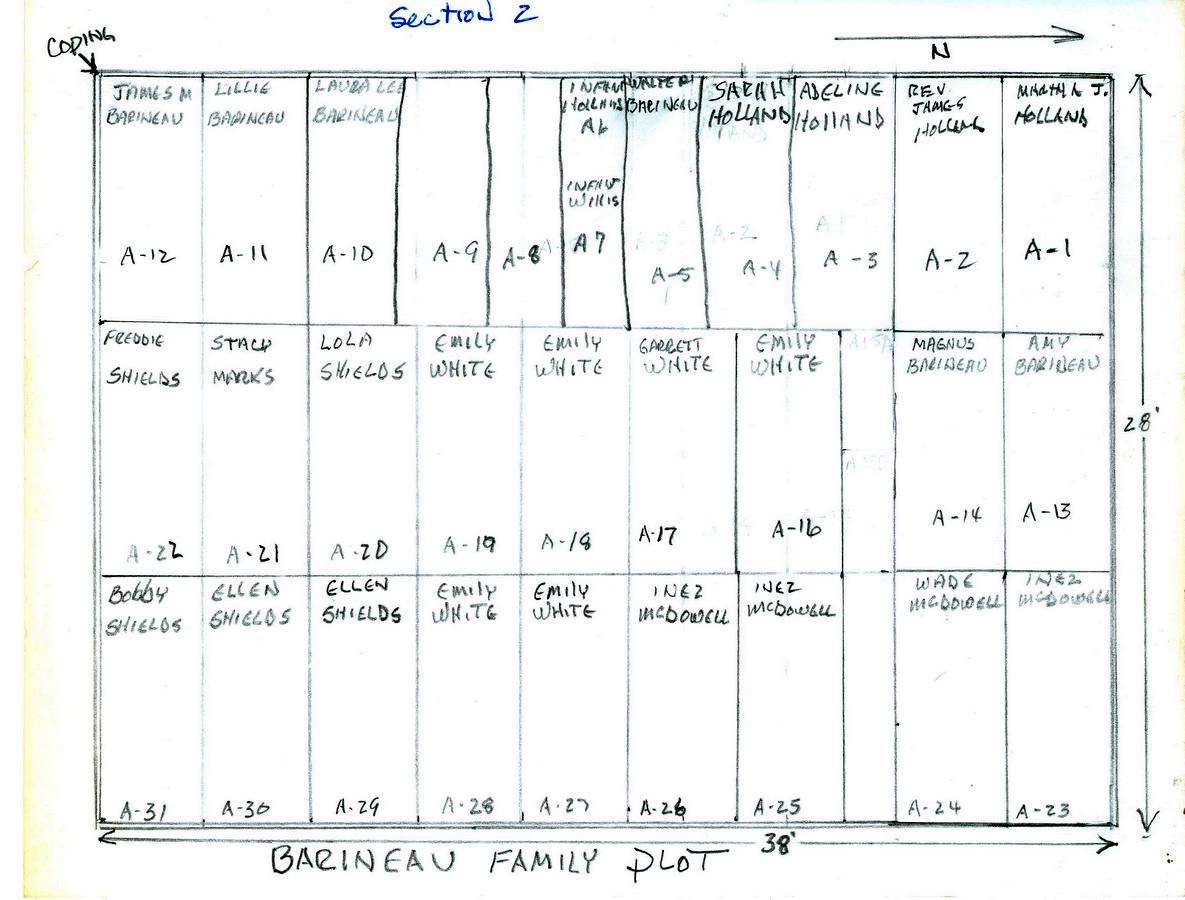 Section 2
CODING
N
JAMES M
BARINEAU
A-12
LILLIE
BARINEAU
A-11
LAURA LEE
BARINEAU
A-10
A-9
A-8
INFANT
HOLLAND
A6
INFANT
WILLIS
A7
WALTER
BARINEAU
A-5
SARAH
HOLLAND
A-2
A-4
ADELINE
HOLLAND
A-3
REV.
JAMES
HOLLAND
A-2
MARTHA J.
HOLLAND
A-1
28'
FREDDIE
SHIELDS
A-22
STACY
MARKS
A-21
LOLA
SHIELDS
A-20
EMILY
WHITE
A-19
EMILY
WHITE
A-18
GARRETT
WHITE
A-17
EMILY
WHITE
A-16
MAGNUS
BARINEAU
A-14
AMY
BARINEAU
A-13
BObbY
SHIELDS
A-31
ELLEN
SHIELDS
A-30
ELLEN
SHIELDS
A-29
EMILY
WHITE
A-28
EMILY
WHITE
A-27
INEZ
McDOWELL
A-26
INEZ
McDOWELL
A-25
WADE
McDOWELL
A-24
INEZ
McDOWELL
A-23
38'
BARINEAU FAMILY PLOT